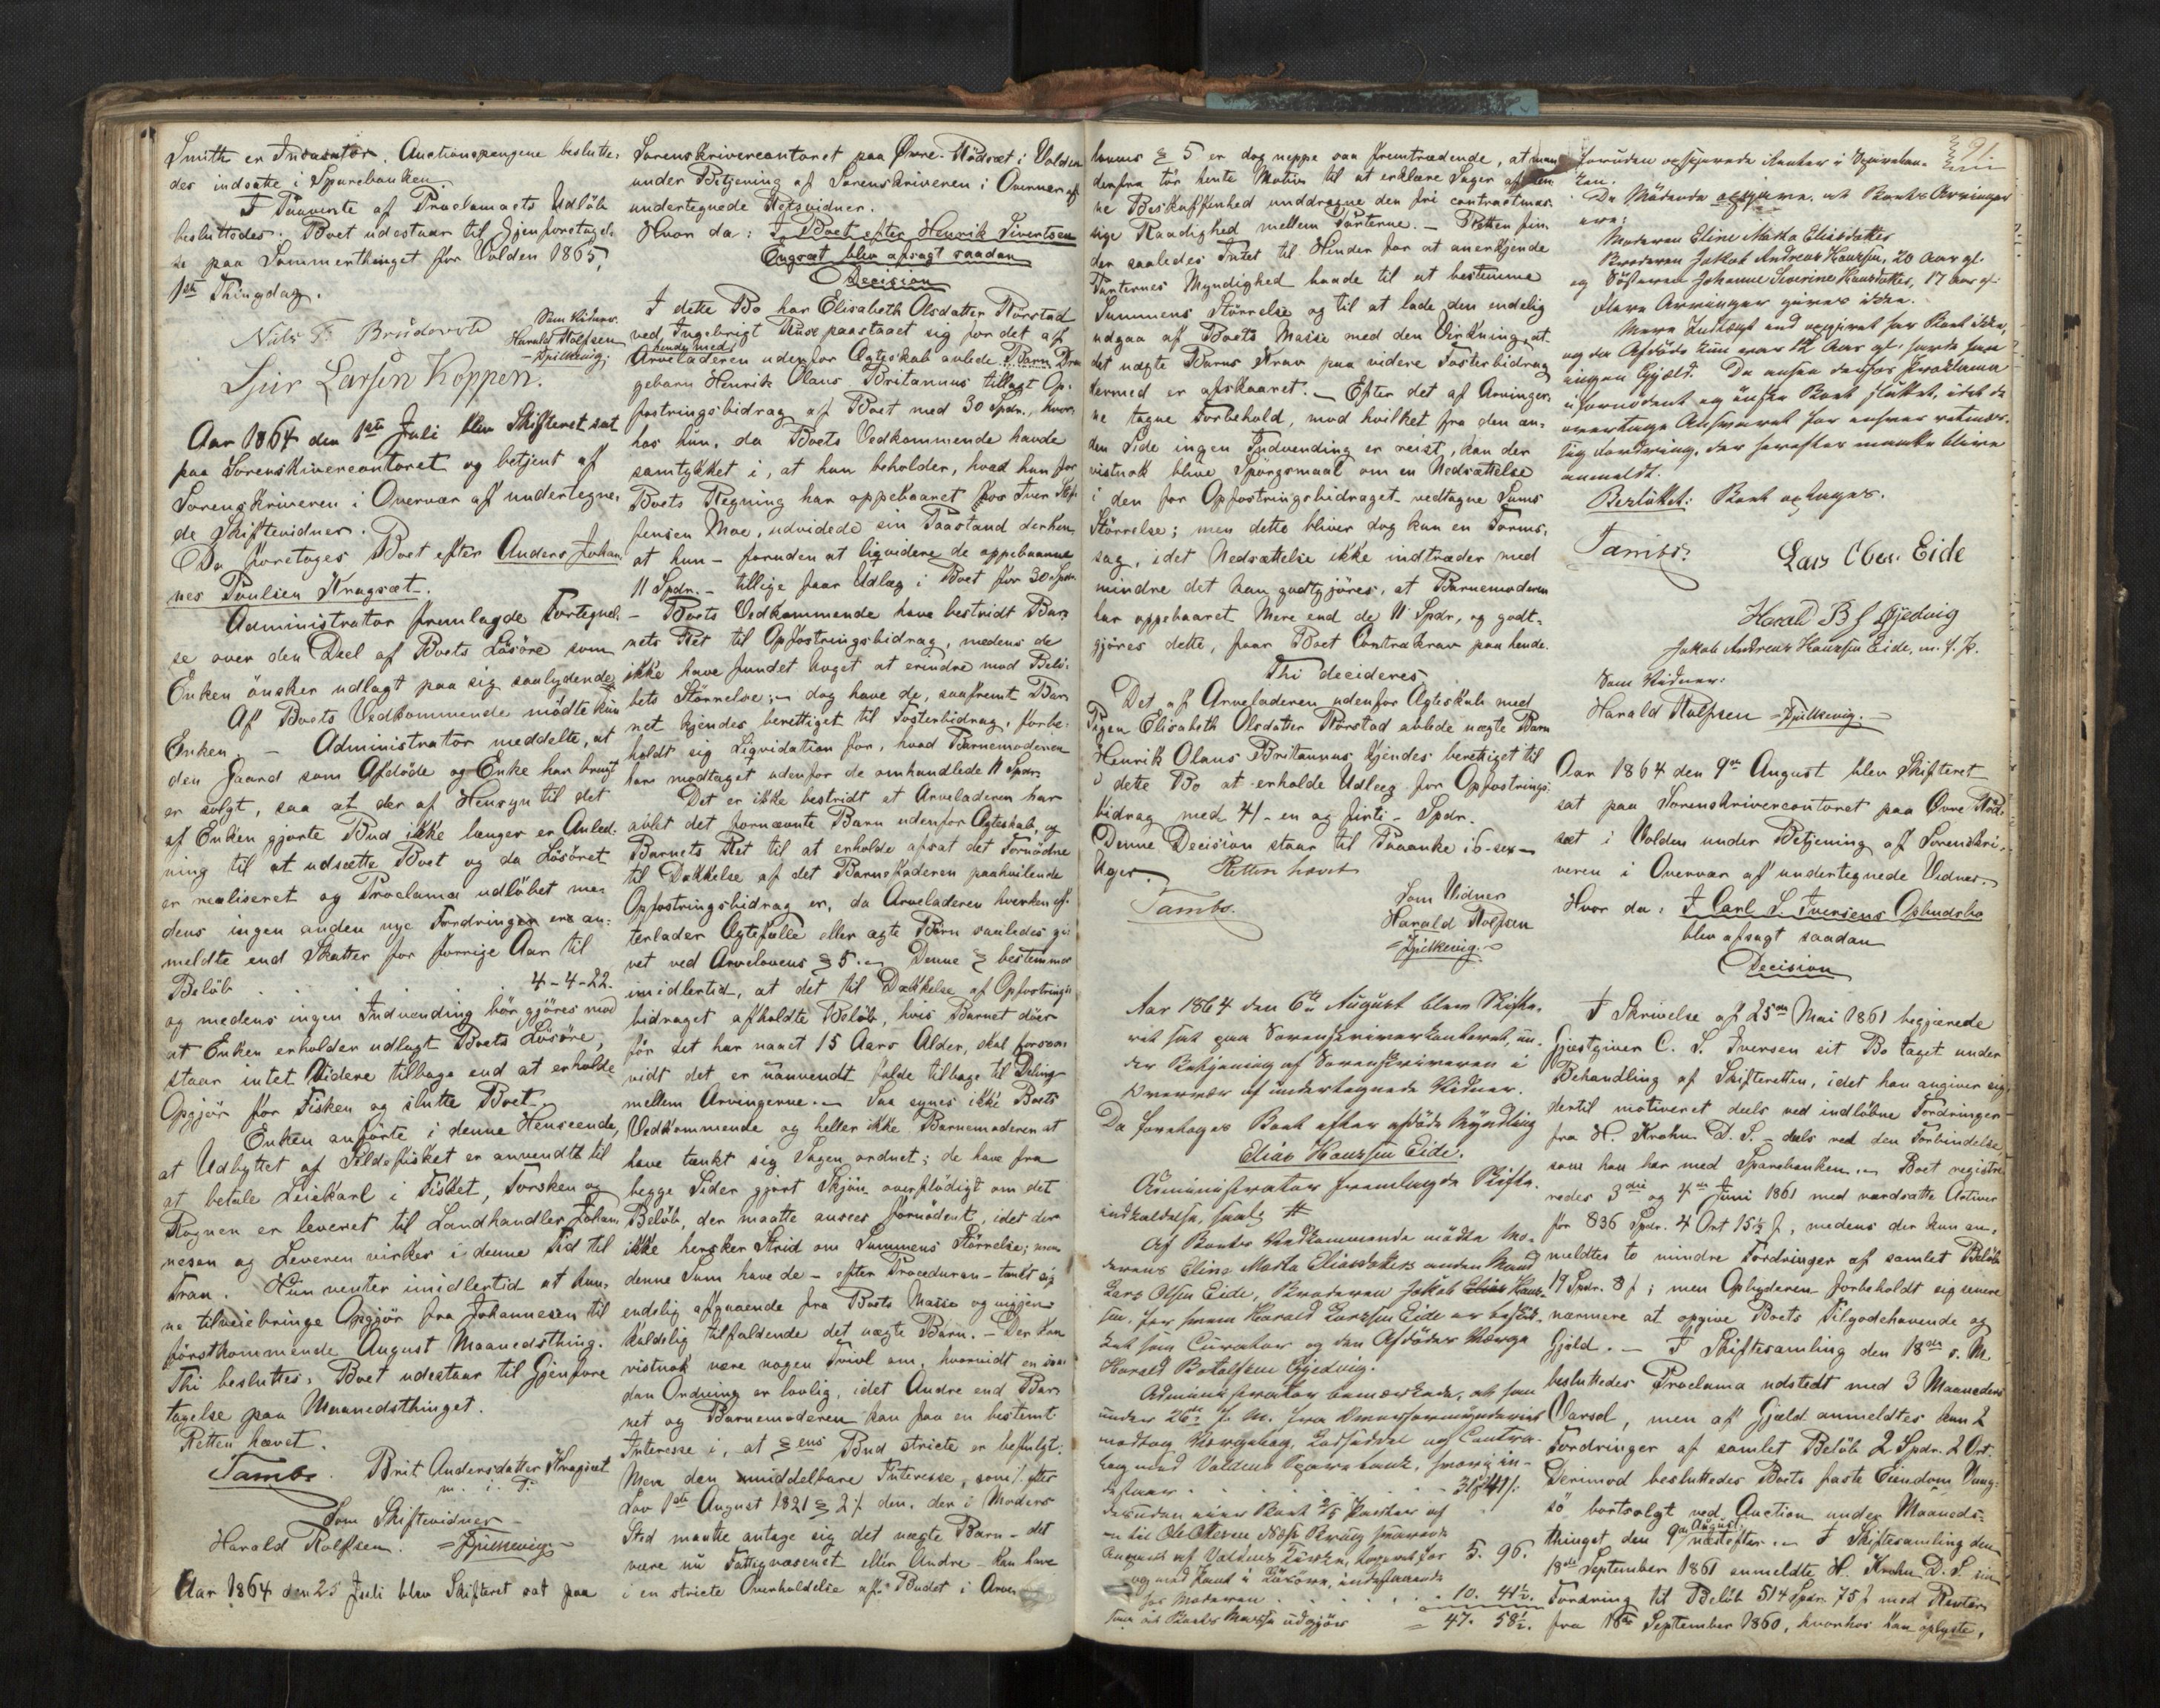 Smith er Incasator. Auctionspengene beslutte-
des indsatte i Sparebanken
I Paavente af Proclamaets Udløb
besluttedes: Boet udestaar til Gjenforetagel-
se paa Sommerthinget for Volden 1865,
1ste Thingdag.
Som Vidner.
Harald Rolfsen
Sjur Larsen Koppen.
Aar 1864 den 1ste Juli blev Skifteret sat
paa Sorenskrivercontoret og betjent af
Sorenskriveren i Overvær af undertegne-
de Skiftevidner.
Da foretoges Boet efter Anders Johan-
nes Poulsen Kragsæt.
Administrator fremlagde Fortegnel-
se over den Deel af Boets Løsøre som
Enken ønsker udlagt paa sig saalydende
Af Boets Vedkommende mødte kun
Enken. – Administrator meddelte, at
den Gaard som Afdøde og Enke har brugt
er solgt, saa at der af Hensyn til det
af Enken gjorte Bud ikke længer er Anled-
ning til at udsætte Boet og da Løsøret
er realiseret og Proclama udløbet me-
dens ingen anden nye Fordringer ere an-
meldte end Skatter for forrige Aar til
Beløb . . . . 4-4-22.
og medens ingen Indvending bør gjøres mod
at Enken erholder udlagt Boets Løsøre,
staar intet Videre tilbage end at erholde
Opgjør for Fisken og slutte Boet.
Enken anførte i denne Henseende,
at Udbyttet af Sildefisket er anvendt til
at betale Leiekarl i Fisket, Torsken og
Rognen er leveret til Landhandler Johan-
nesen og Leveren virkes i denne Tid til
Tran. Hun venter imidlertid at kun-
ne tilveiebringe Opgjør fra Johannesen til
førstkommende August Maanedsthing.
Thi besluttes: Boet udestaar til Gjenfore-
tagelse paa Maanedsthinget.
Retten hævet.
Tambs. Brit Andersdatter Kragsæt
m. i. P.
Som Skiftevidner
Harald Rolfsen.
Aar 1864 den 25 Juli blev Skifteret sat paa
Sorenskrivercontoret paa Øvre Rødsæt i Volden
under Betjening af Sorenskriveren i Overvær af
undertegnede Retsvidner.
Hvor da: I Boet efter Henrik Sivertsen
Engsæt blev afsagt saadan
Decision
I dette Bo har Elisabeth Olsdatter Rørstad
ved Ingebrigt Kruse paastaaet sig for det af
Arveladeren hende med udenfor Ægteskab avlede Barn Dre-
gebarn Henrik Olaus Britannus tillagt Op-
fostringsbidrag af Boet med 30 Spdr., hvor-
hos hun, da Boets Vedkommende havde
samtykket i, at hun beholder, hvad hun for
Boets Regning har oppebaaret hos Iver Stef-
fensen Moe, udvidede sin Paastand derhen
at hun – foruden at liqvidere de oppebaarne
11 Spdr. – tillige faar Udlæg i Boet for 30 Spdr.
– Boets Vedkommende have bestridt Bar-
nets Ret til Opfostringsbidrag, medens de
ikke have fundet Noget at erindre mod Belø-
bets Størrelse; – dog have de, saafremt Bar-
net kjendes berettiget til Fosterbidrag, forbe-
holdt sig Liqvidation for, hvad Barnemoderen
har modtaget udenfor de omhandlede 11 Spdr.
Det er ikke bestridt at Arveladeren har
avlet det fornævnte Barn udenfor Ægteskab, og
Barnets Ret til at erholde afsat det Fornødne
til Dækkelse af det Barnefaderen paahvilende
Opfostringsbidrag er, da Arveladeren hverken ef-
terlader Ægtefælle eller ægte Børn saaledes gi-
vet ved Arvelovens § 5. – Denne § bestemmer
imidlertid, at det til Dækkelse af Opfostrings-
bidraget afholdte Beløb, hvis Barnet døer
før det har naaet 15 Aars Alder, skal forsaa-
vidt det er uanvendt falde tilbage til Deling
mellem Arvingerne. – Saa synes ikke Boets
Vedkommende og heller ikke Barnemoderen at
have tænkt sig Sagen ordnet; de have fra
begge Sider gjort Skjøn overflødigt om det
Beløb, der maatte ansees fornødent, idet der
ikke hersker Strid om Summens Størrelse; men
denne Sum have de – efter Proceduren – tænkt sig
endelig afgaaende fra Boets Masse og uigjen-
kaldelig tilfaldende det uægte Barn. – Der kan
vistnok være nogen Tvivl om, hvorvidt en saa-
dan Ordning er lovlig, idet Andre end Bar-
net og Barnemoderen kan faa en bestemt
Interesse i, at §ens Bud stricte er befulgt.
Men den umiddelbare Interesse, som efter
Lov 1ste August 1821 § 2 den, der i Moders
Sted maatte antage sig det uægte Barn – det
være nu Fattigvæsenet eller Andre – kan have
i en stricte Overholdelse af Budet i Arve-
lovens § 5 er dog neppe saa fremtrædende, at man
derfra tør hente Motiv til at erklære Sager af den-
ne Beskaffenhed unddragne den fri contractmæs-
sige Raadighed mellem Parterne. – Retten fin-
der saaledes Intet til Hinder for at anerkjende
Parternes Myndighed baade til at bestemme
Summens Størrelse og til at lade den endelig
udgaa af Boets Masse med den Virkning, at
det uægte Barns Krav paa videre Fosterbidrag
dermed er afskaaret. – Efter det af Arvinger-
ne tagne Forbehold, mod hvilket fra den an-
den Side ingen Indvending er reist, kan der
vistnok blive Spørgsmaal om en Nedsættelse
i den for Opfostringsbidraget vedtagne Sums
Størrelse; men dette bliver dog kun en Forms-
sag, idet Nedsættelse ikke indtræder med
mindre det kan godtgjøres, at Barnemoderen
har oppebaaret Mere end de 11 Spdr, og godt-
gjøres dette, faar Boet Contrakrav paa hende.
Thi decideres
Det af Arveladeren udenfor Ægteskab med
Pigen Elisabeth Olsdatter Rørstad avlede uægte Barn
Henrik Olaus Britannus kjendes berettiget til
i dette Bo at erholde Udlæg for Opfostrings-
bidrag med 41 – en og firti – Spdr.
Denne Decision staar til Paaanke i 6 – sex –
Uger. Retten hævet
Tambs.
Som Vidner
Harald Rolfsen
Aar 1864 den 6te August blev Skifte-
ret sat paa Sorenskriverkontoret, un-
der Betjening af Sorenskriveren i
Overvær af undertegnede Vidner.
Da foretoges Boet efter afdøde Myndling
Elias Hanssen Eide.
Administrator fremlagde Skifte-
indkaldelse, saal: #
Af Boets Vedkommende mødte Mo-
derens Eline Marta Eliasdatters anden Mand
Lars Olsen Eide, Broderen Jakob Hans-
sen, for hvem Harald Larssen Eide er beskik-
ket som Curator og den Afdødes Værge
Harald Botolfsen Gjedvig.
Administrator bemærkede, at han
under 26de f. M. fra Overformynderiet
modtog Værgebog, Lodseddel og Contra-
bog med Voldens Sparebank, hvori in-
destaar . . . . . .
desuden eier Boet 2/5 Parter af
5. 96.
hos Moderen . . . . . 10. 41½.
som at Boets Masse udgjør = 47. 58½.
91.
foruden opsparede Renter i Spareban-
ken.
De Mødende opgave, at Boets Arvinger
ere:
Moderen Eline Marta Eliasdatter
Broderen Jakob Andreas Hanssen, 20 Aar gl.
og Søsteren Johanne Severine Hansdatter, 17 Aar gl.
Flere Arvinger haves ikke.
Mere Indtægt end opgivet har Boet ikke,
og da Afdøde kun var 12 Aar gl. havde han
ingen Gjæld. De ansee derfor Proklama
ufornødent og ønske Boet sluttet, idet de
overtage Ansvaret for enhver retmæs-
sig Fordring, der herefter maatte blive
anmeldt.
Besluttet: Boet optages.
Tambs.
Lars Olsen Eide
Harald B S Gjedvig
Jakob Andreas Hanssen Eide, m. f. P.
Som Vidner:
Harald Rolfsen
Aar 1864 den 9de August blev Skifteret
sat paa Sorenskrivercontoret paa Øvre Rød-
sæt i Volden under Betjening af Sorenskri-
veren i Overvær af undertegnede Vidner.
Hvor da: I Carl S. Iversens Opbudsbo
blev afsagt saadan
Decision
I Skrivelse af 25de Mai 1861 begjærede
Gjæstgiver C. S. Iversen sit Bo taget under
Behandling af Skifteretten, idet han angiver sig
dertil motiveret deels ved indløbne Fordringer
fra H. Krohn D. S. – deels ved den Forbindelse
som han har med Sparebanken. – Boet registre-
redes 3die og 4de Juni 1861 med værdsatte Activer
for 836 Spdr. 4 Ort 15½ ſ, medens der kun an-
meldtes to mindre Fordringer af samlet Beløb
19 Spdr. 8 ſ; men Opbyderen forbeholdt sig senere
nærmere at opgive Boets Tilgodehavende og
Gjæld. – I Skiftesamling den 18de s. M.
besluttedes Proclama udstedt med 3 Maaneders
Varsel, men af Gjæld anmeldtes kun 2
Fordringer af samlet Beløb 2 Spdr. 2 Ort.
Derimod besluttedes Boets faste Eiendom Vaag-
sø bortsolgt ved Auction under Maaneds-
thinget den 9de August næstefter. – I Skiftesamling den
18de September 1861 anmeldte H. Krohn D. S. sin
Fordring til Beløb 514 Spdr. 75 ſ med Renter
fra 18de September 1860, hvorhos han oplyste,